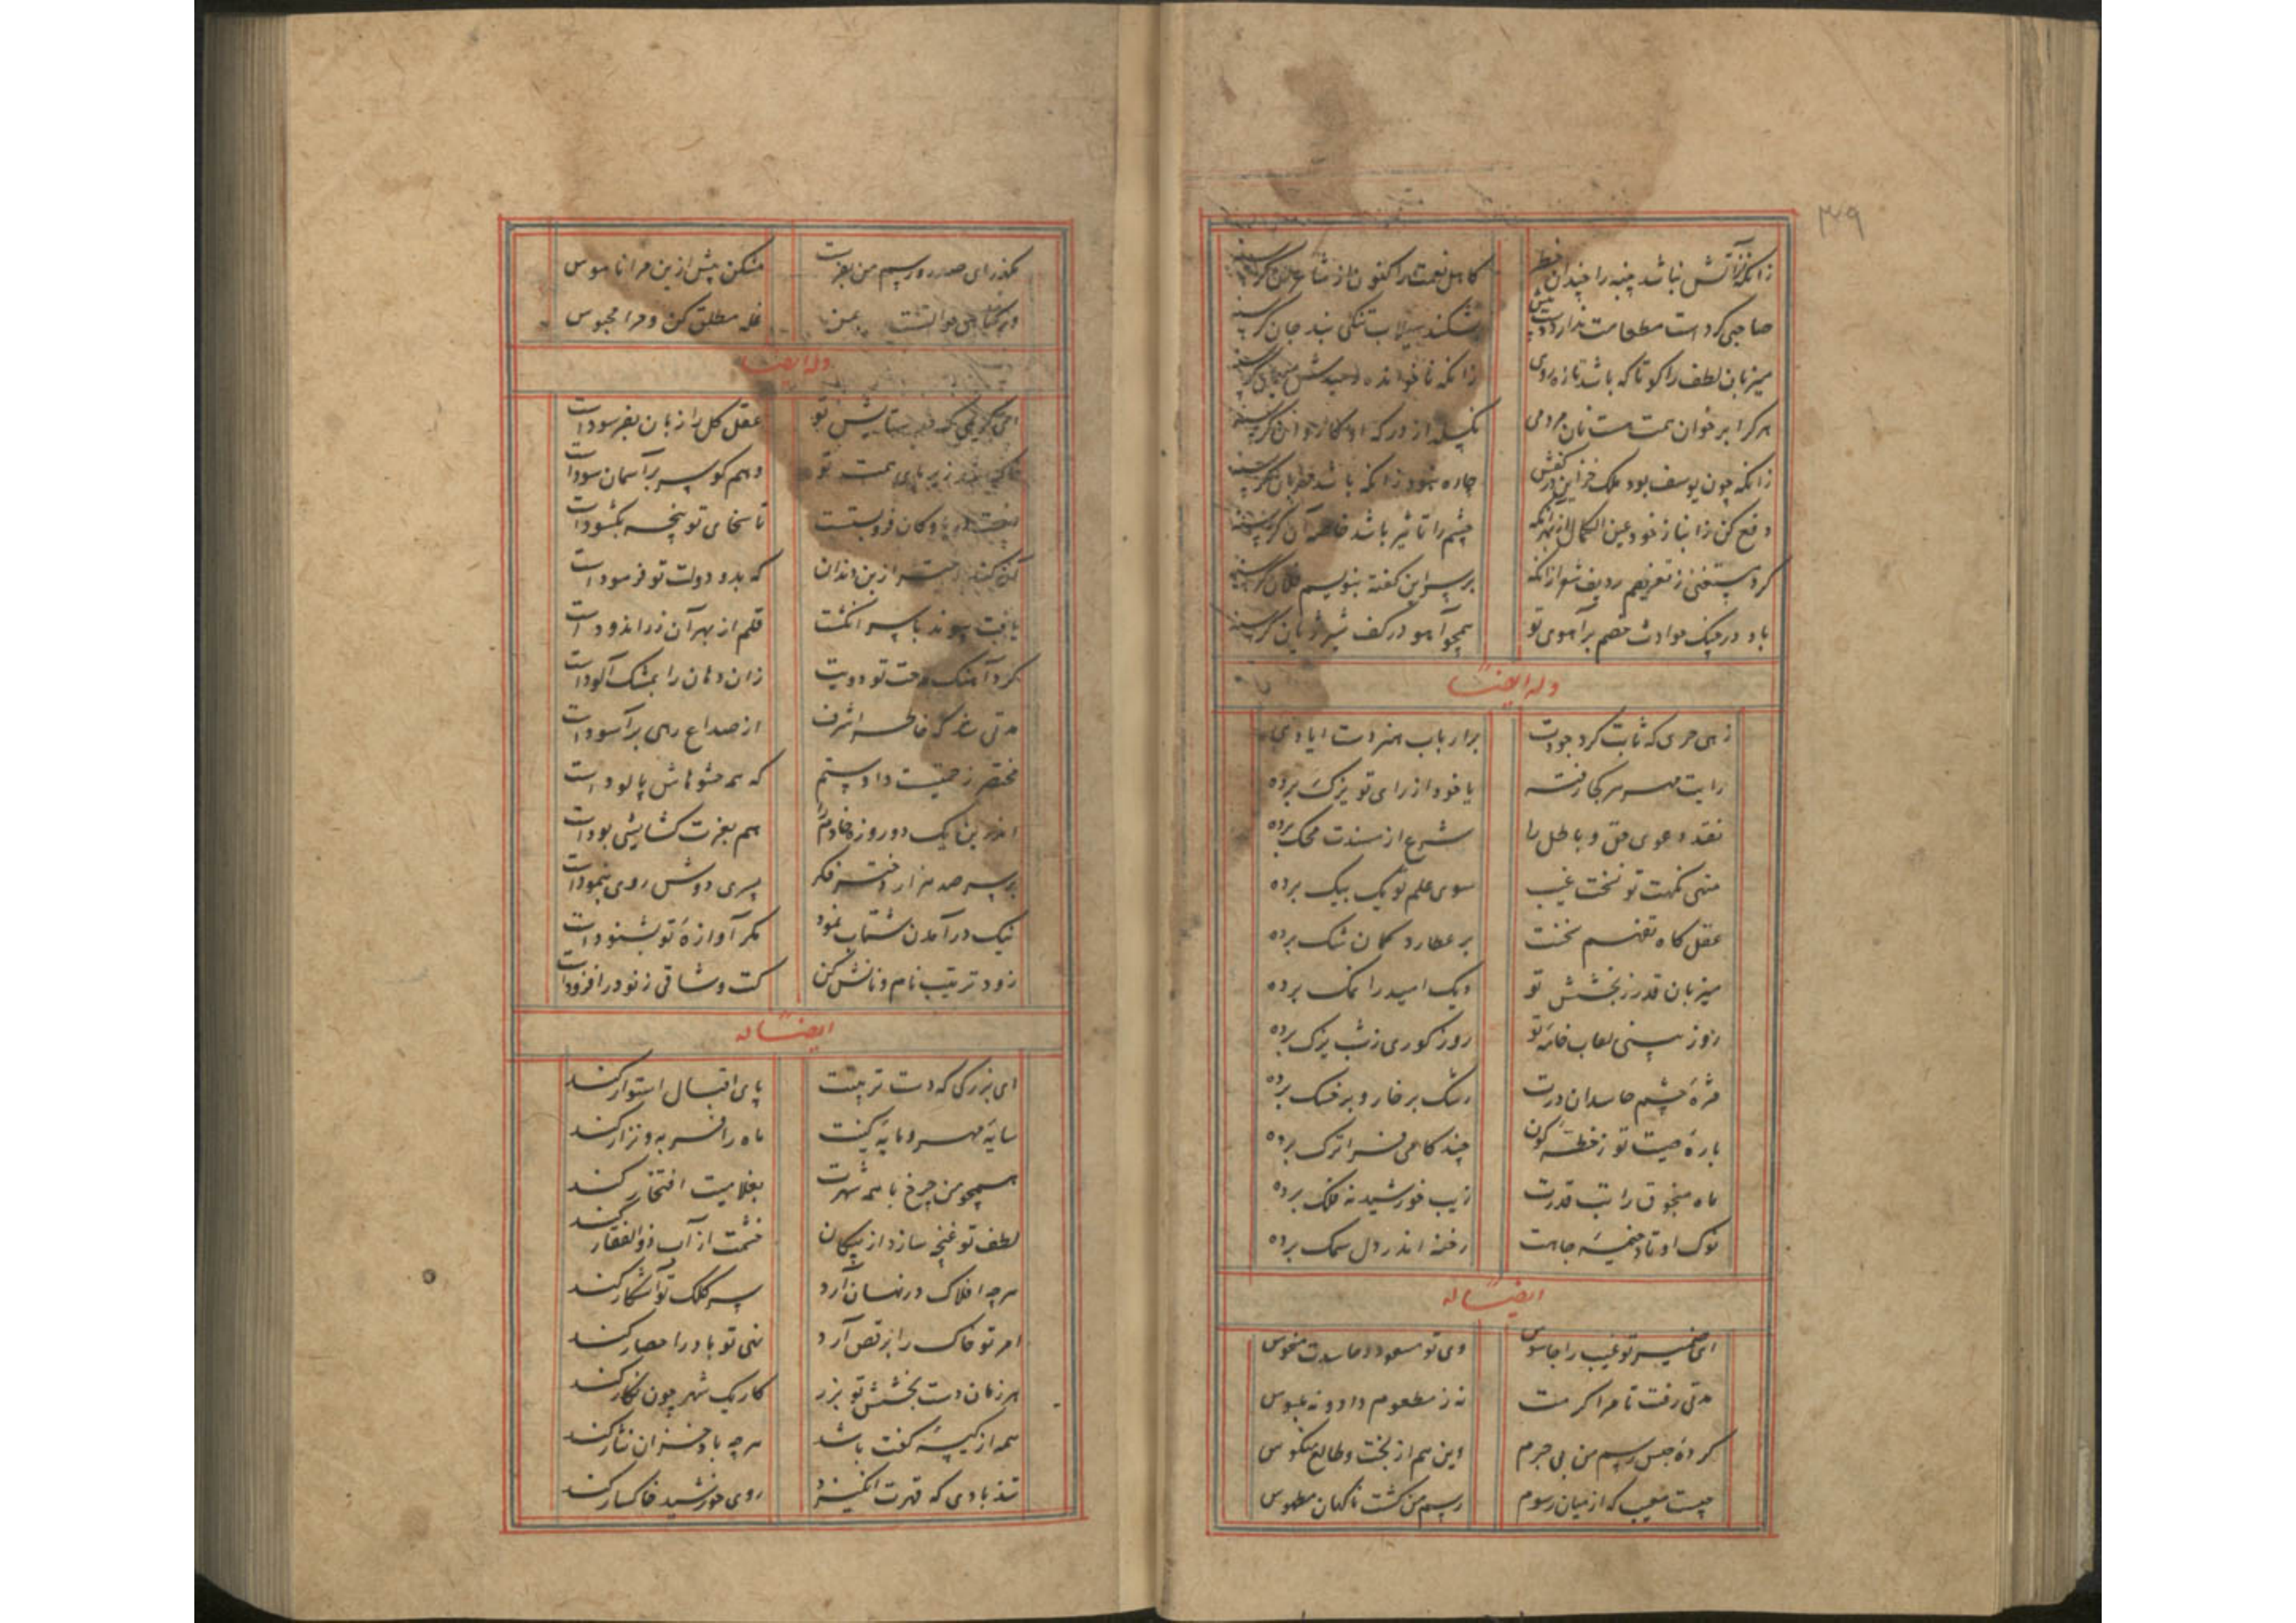 ۳۴۹
زانکه از آتش نباشد پنبه را چندان خطر کاهل نعمت را کنون از
صاحبی کردست مطعامت ندارد دوست پیش بشکند سیلاب تنگی بند جان گرسنه
میزبان لطف را کو تا که باشد تازه روی زانکه ناخوانده رسیدش میهمان گرسنه
هر کرا بر خوان همت هست نان مردمی نگسلد از درکه او کاروان گرسنه
زانکه چون یوسف بود ملک خزاین در کفش چاره نبود زانکه باشد گرسنه
دفع کن ز انبار خود عین الکمال از بهر آنکه چشم را تاثیر باشد خاصه آن گرسنه
کرد مستغنی ز تعریضم ردیف شعر ازانکه بر سر این گفته بنویسم فلان گرسنه
باد در چنگ حوادث خصم بر آهوی تو همچو آهو در کف شیر ژیان گرسنه
وله ایضاً
زهی حری که ثابت کرد جودت بر ارباب هنر دست ایادی
رایت مهر هر کجا رفته یا خود از رای تو یزک برده
نقد دعوی حق و باطل را شرع از مسندت محک برده
منهی نکهت تو تخت غیب سوی علم تو یک بیک برده
عقل گاه تفهم سخنت بر عطارد گمان شک برده
میزبان قدر ز بخشش تو دیک امید را نمک برده
روز سپنی لعاب خامه تو روز کوری ز شب پرک برده
مژه چشم حاسدان درت رشک بر خار و بر خسک برده
باره صیت تو ز خطه کون چند گامی فراترک برده
ماه منجوق رایت قدرت زیب خورشید نه فلک برده
نوک اوتاد خیمه جاهت رخنه اندر دل سمک برده
ایضاً له
ای ضمیر تو غیب را جاسوس وی تو مسعود و حاسدت منحوس
مدتی رفت تا مرا کرمت نه ز مطعوم داد و نه ملبوس
کرده حبس رسم من بی جرم وین هم از بخت و طالع منکوس
چیست معیب که از میان رسوم رسم من گشت ناگهان مطموس
بگذر ای صدر و رسم من بفرست مشکن پیش ازین مرا ناموس
ور غله مطلق کن و مرا محبوس
وله ایضاً
ای کریمی که ستایش تو عقل کل را زبان بفرسودست
زیر پای همت تو وهم کو سر بر آسمان سودست
و کان فروبستست تا سخای تو پنجه بگشودست
از بن دندان که بدو دولت تو فرمودست
یافت پیوند با سر انگشت قلم از بهر آن زر اندودست
کرد آهنگ مدحت تو دویت زان دهان را بمشک آلودست
مدتی شد که خاطر اشرف از صداع رهی برآسودست
مختصر زحمتیست داد ستم که همه حشوهاش پالودست
اندرین یک دو روزه خادم را هم بعزت گشایشی بودست
بر سر صد هزار دختر فکر پسری دوش روی بنمودست
نیک در آمدن شتاب نمود مگر آوازه تو بشنودست
زود ترتیب نام و نانش کن کت وشاقی ز نو در افزودست
ایضاً له
ای بزرگی که دست تربیتت پای اقبال استوار کند
سایه مهر و مایه کینت ماه را فربه و نزار کند
همچو من چرخ با همه شهرت بغلامیت افتخار کند
لطف تو غنچه سازد از پیکان خشمت از آب ذوالفقار کند
هرچه افلاک در نهان آرد سر کلک تو آشکار کند
امر تو خاک را برقص آرد نهی تو باد را حصار کند
هر زمان دست بخشش تو بزر کار یک شهر چون نگار کند
همه از کیسه کفت باشد هر چه باد خزان نثار کند
تند بادی که قهرت انگیزد روی خورشید خاکسار کند